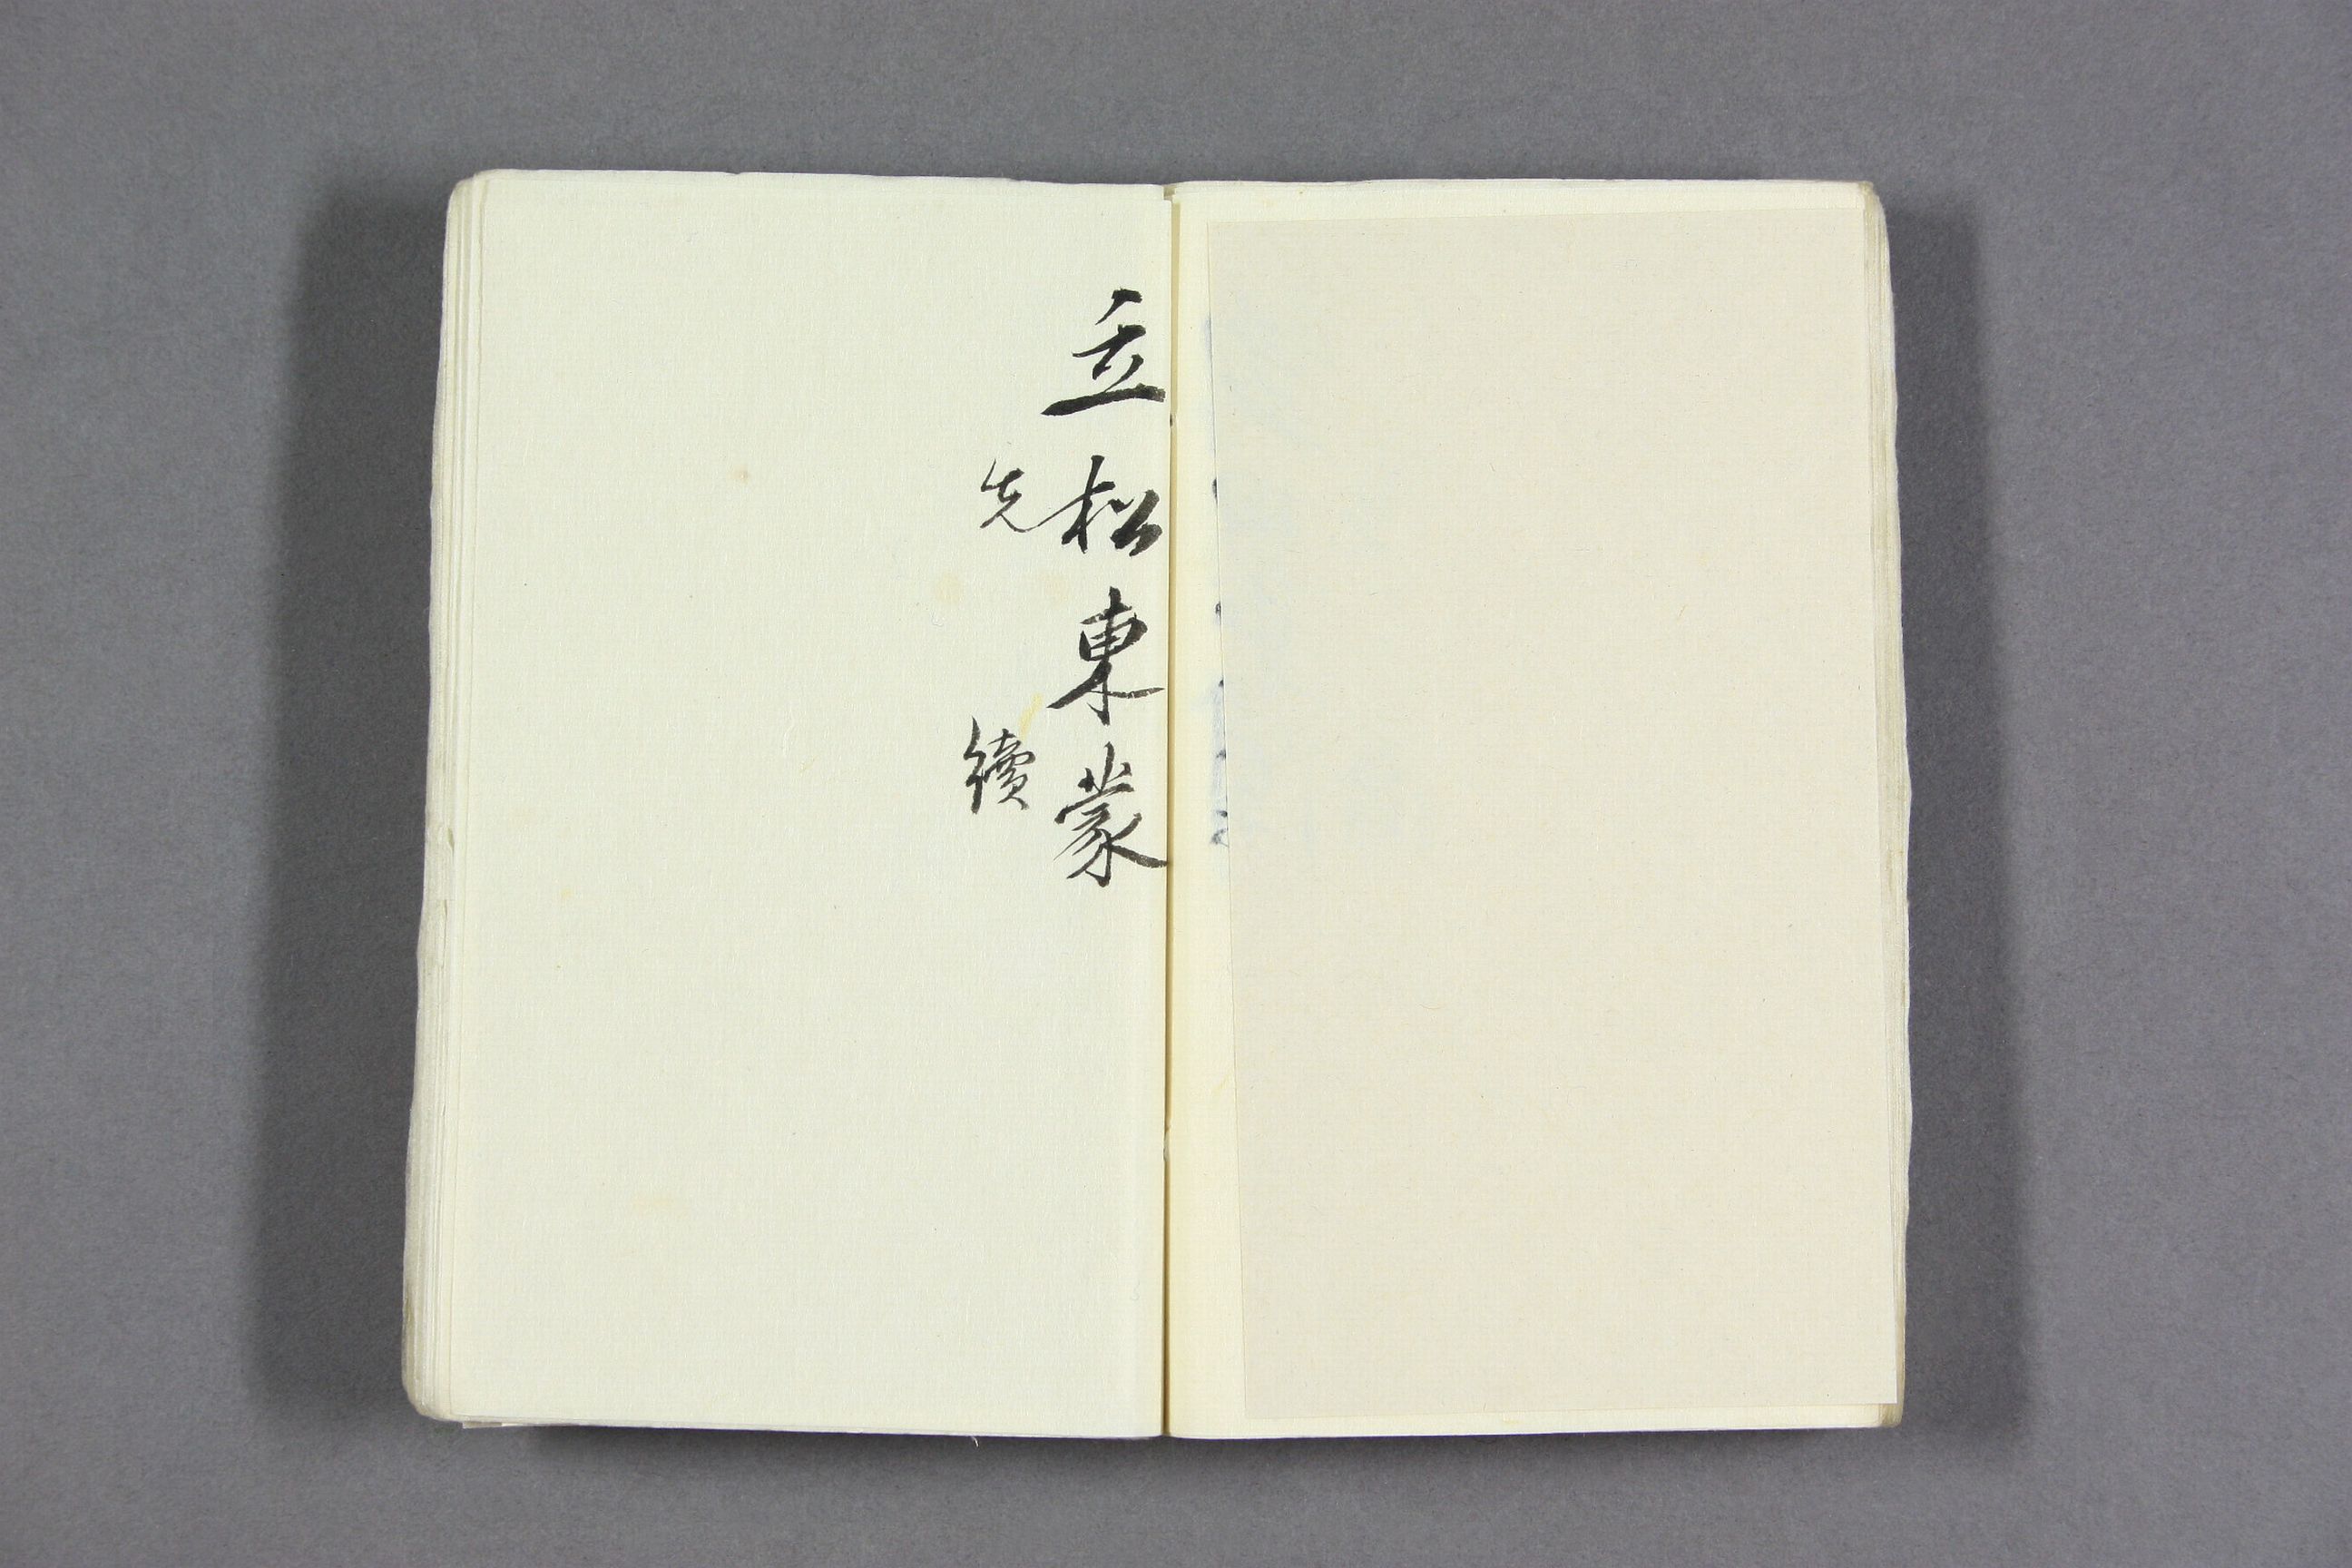 立松東蒙
先 續